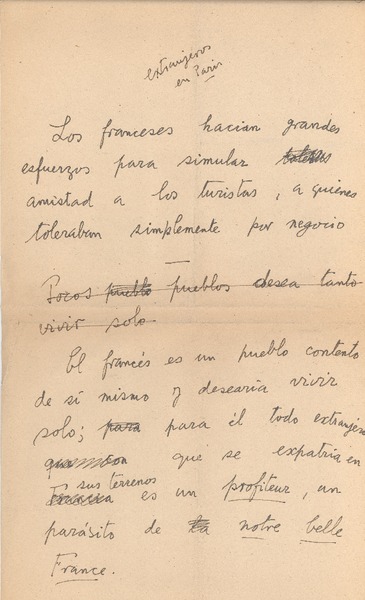 extranjeros
en Paris
Los franceses hacian grandes
esfuerzos para simular
amistad a los turistas, a quienes
toleraban simplemente por negocio
—
Pocos pueblo pueblos desea tanto
vivir solo.
El francés es un pueblo contento
de sí mismo y desearía vivir
solo; para para él todo extranjero
que se expatria en
sus terrenos
es un profiteur, un
parásito de la notre belle
France.